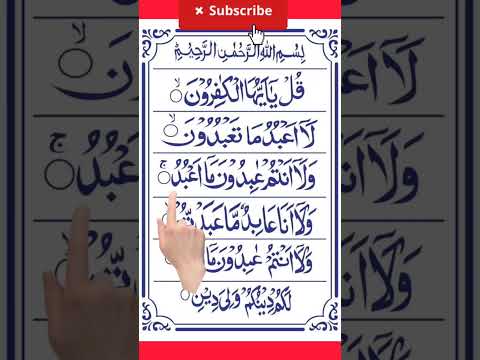 × Subscribe
بِسْمِ اللهِ الرَّحْمٰنِ الرَّحِيْمِ
قُلْ يٰۤاَيُّهَا الْكٰفِرُوْنَ ۙ
لَاۤ اَعْبُدُ مَا تَعْبُدُوْنَ ۙ
وَلَاۤ اَنْتُمْ عٰبِدُوْنَ مَاۤ اَعْبُدُ ۚ
وَلَاۤ اَنَا عَابِدٌ مَّا عَبَدْتُّمْ
وَلَاۤ اَنْتُمْ عٰبِدُوْنَ مَاۤ
لَكُمْ دِيْنُكُمْ وَلِيَ دِيْنِ